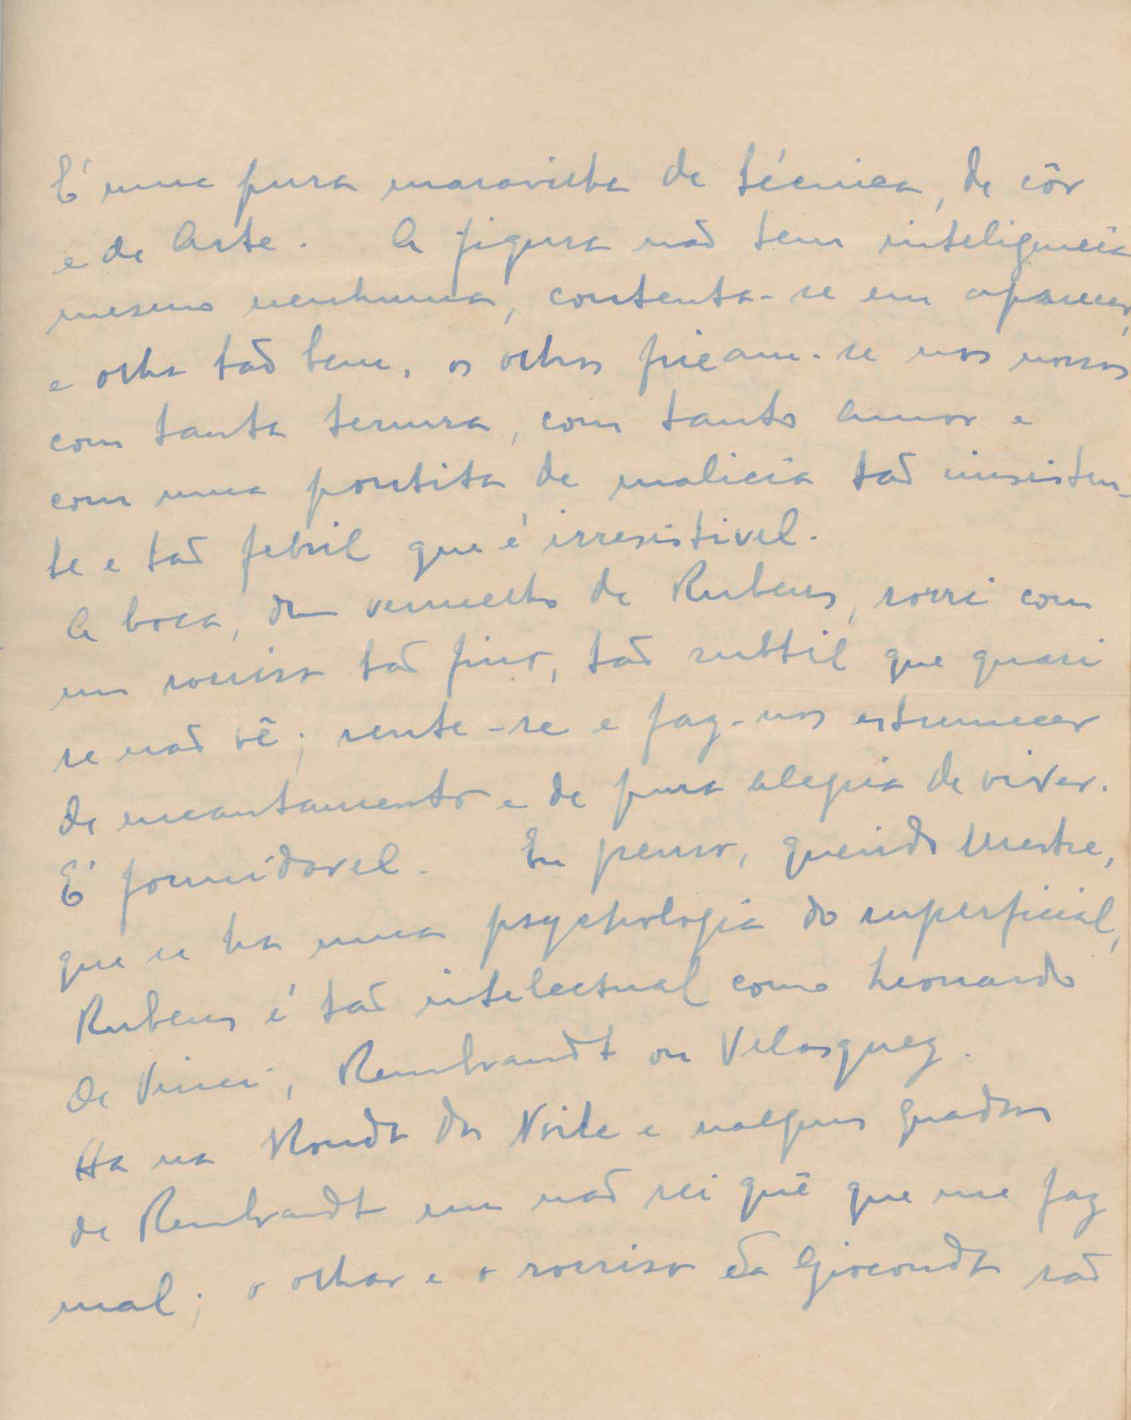 É uma pura maravilha de técnica, de côr
e de Arte. A figura não tem inteligencia
mesmo nenhuma, contenta-se em aparecer,
e olha tão bem, os olhos ficam-se nos nossos
com tanta ternura, com tanto amor e
com uma pontita de malicia tão insisten-
te e tão febril que é irresistivel.
A boca, dum vermelho de Rubens, sorri com
um sorriso tão fino, tão subtil que quasi
se não vê; sente-se e faz-nos estremecer
de encantamento e de pura alegria de viver.
É formidavel. Eu penso, querido Mestre,
que se ha uma psychologia do superficial,
Rubens é tão intelectual como Leonardo
de Vinci, Rembrandt ou Velasquez.
Ha na Ronda da Noite e nalguns quadros
de Rembrandt um não sei quê que me faz
mal; o olhar e o sorriso da Gioconda são